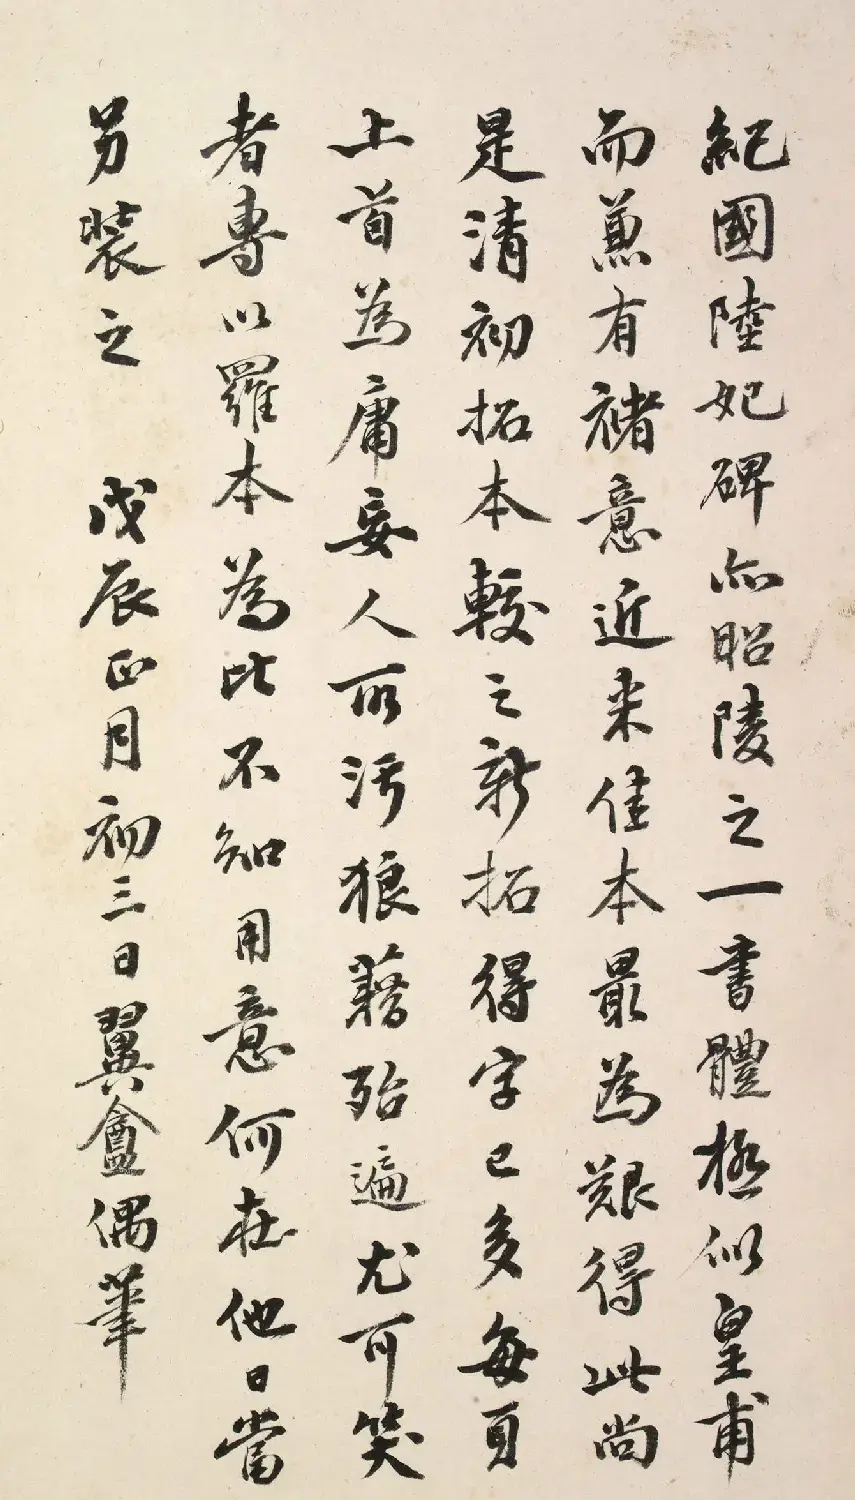 紀國陸妃碑亦昭陵之一書體極似皇甫
而兼有褚意近来佳本最為艱得此尚
是清初拓本較之新拓得字已多每頁
上首為庸妄人所污狼藉殆遍尤可笑
者專以羅本為比不知用意何在他日當
另裝之 戊辰正月初三日翼盦偶筆